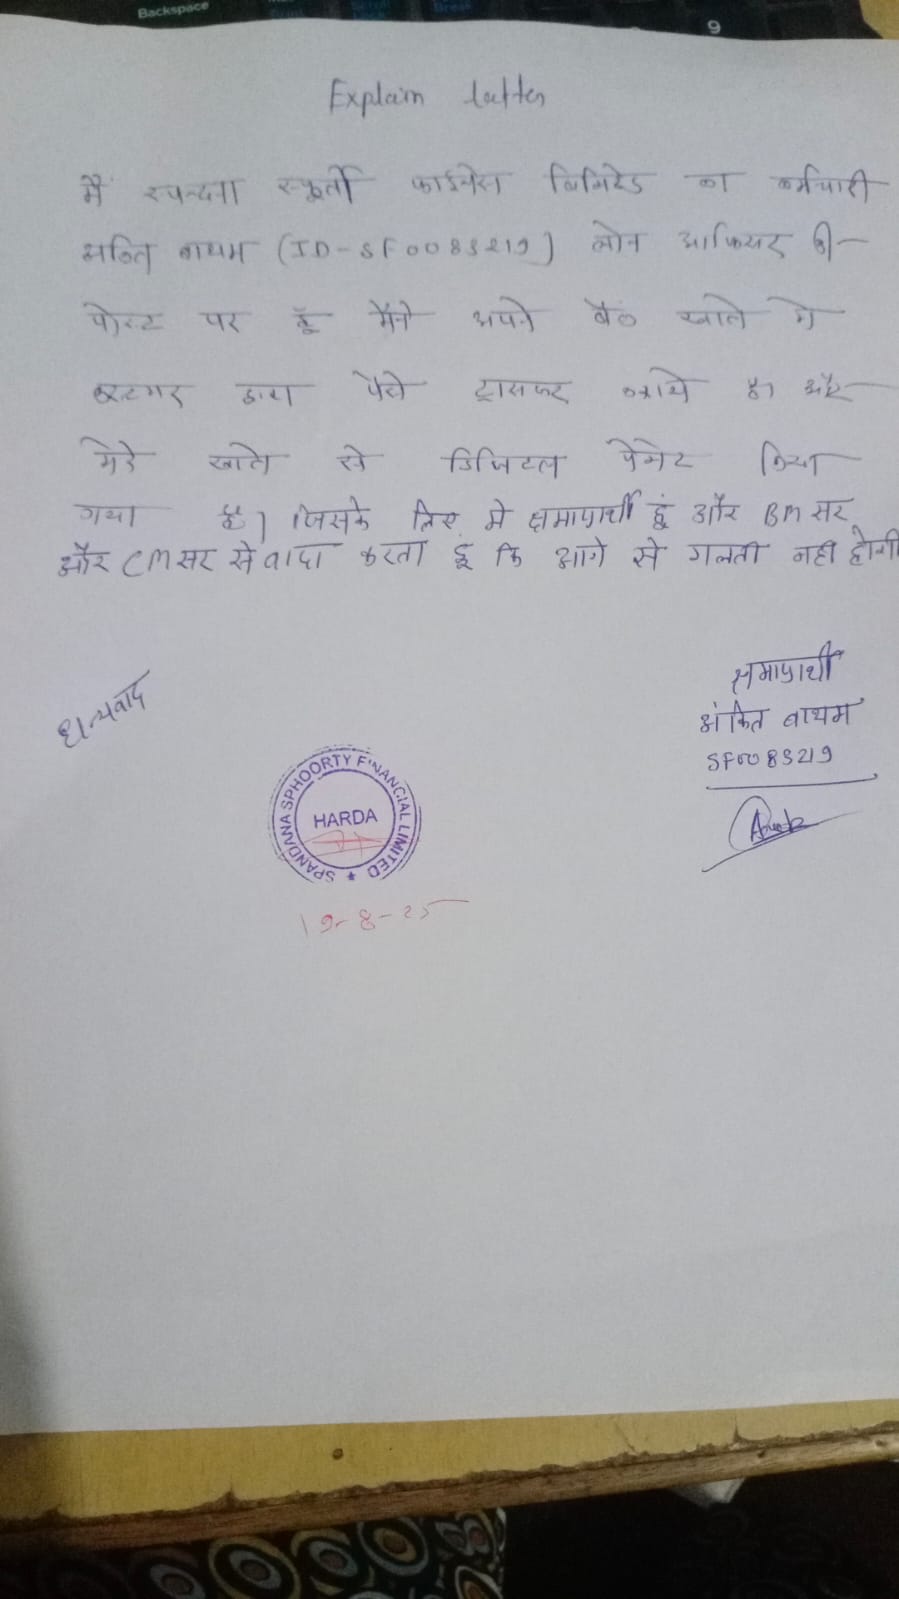 Backspace
9
Explain latter
मैं स्पन्दना स्फूर्ती फाईनेंस लिमिटेड का कर्मचारी
बाथम (ID-SF0083219) लोन आफिसर की
पोस्ट पर हूँ मैने अपने बैंक खाते मे
कस्टमर द्वारा पैसे ट्रासफर कराये है। और
मेरे खाते से डिजिटल पेमेंट किया
गया है। जिसके लिए मे क्षमाप्रार्थी हूं और BM सर
और CM सर से वादा करता हूं कि आगे से गलती नही होगी
धन्यवाद
क्षमाप्रार्थी
अंकित बाथम
SF0083219
SPANDANA SPHOORTY FINANCIAL LIMITED
HARDA
19-8-25